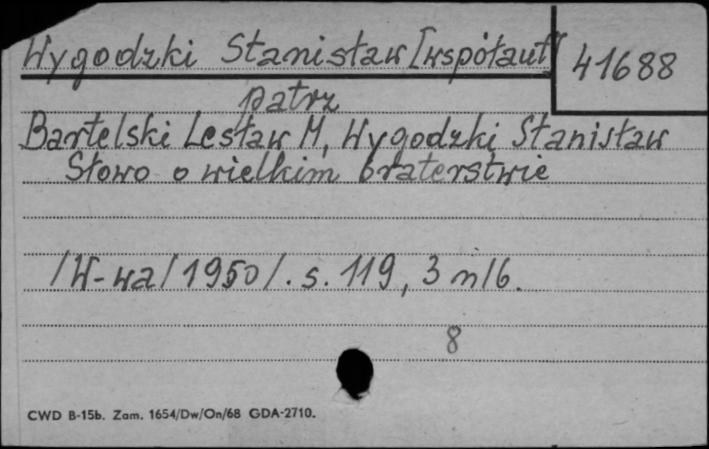 Wygodzki Stanisław [współaut]
41688
patrz
Bartelski Lesław M, Wygodzki Stanisław
Słowo o wielkim braterstwie
/W-wa/1950/. s. 119, 3 nlb.
8
CWD B-15b. Zam. 1654/Dw/On/68 GDA-2710.